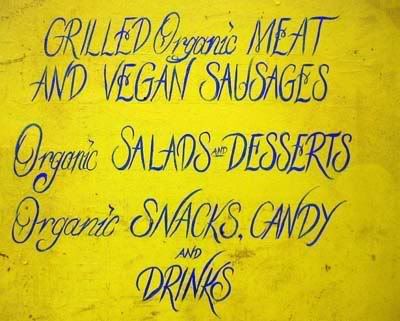 GRILLED Organic MEAT
AND VEGAN SAUSAGES
Organic SALADS AND DESSERTS
Organic SNACKS, CANDY
AND
DRINKS